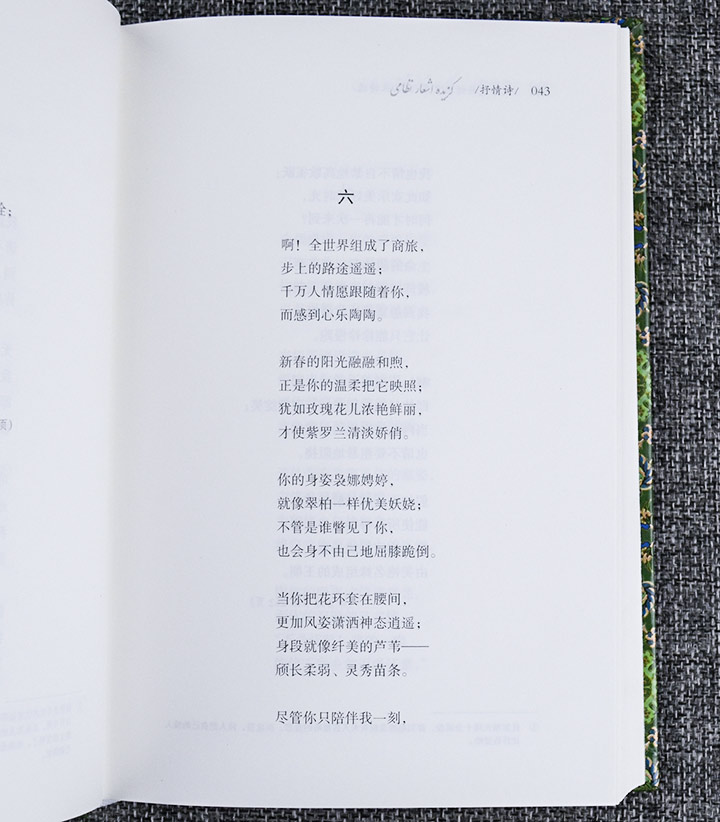 گزیده اشعار نظامی /抒情诗/ 043
六
啊！全世界组成了商旅，
步上的路途遥遥；
千万人情愿跟随着你，
而感到心乐陶陶。
新春的阳光融融和煦，
正是你的温柔把它映照；
犹如玫瑰花儿浓艳鲜丽，
才使紫罗兰清淡娇俏。
你的身姿袅娜娉婷，
就像翠柏一样优美妖娆；
不管是谁瞥见了你，
也会身不由己地屈膝跪倒。
当你把花环套在腰间，
更加风姿潇洒神态逍遥；
身段就像纤美的芦苇——
颀长柔弱、灵秀苗条。
尽管你只陪伴我一刻，